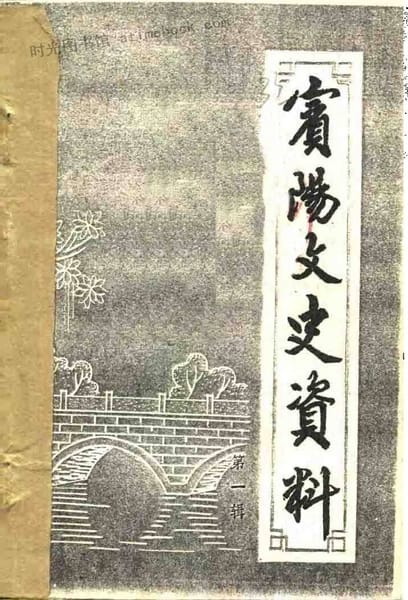 时光图书馆 atimebook.com
賓陽文史資料
第一辑